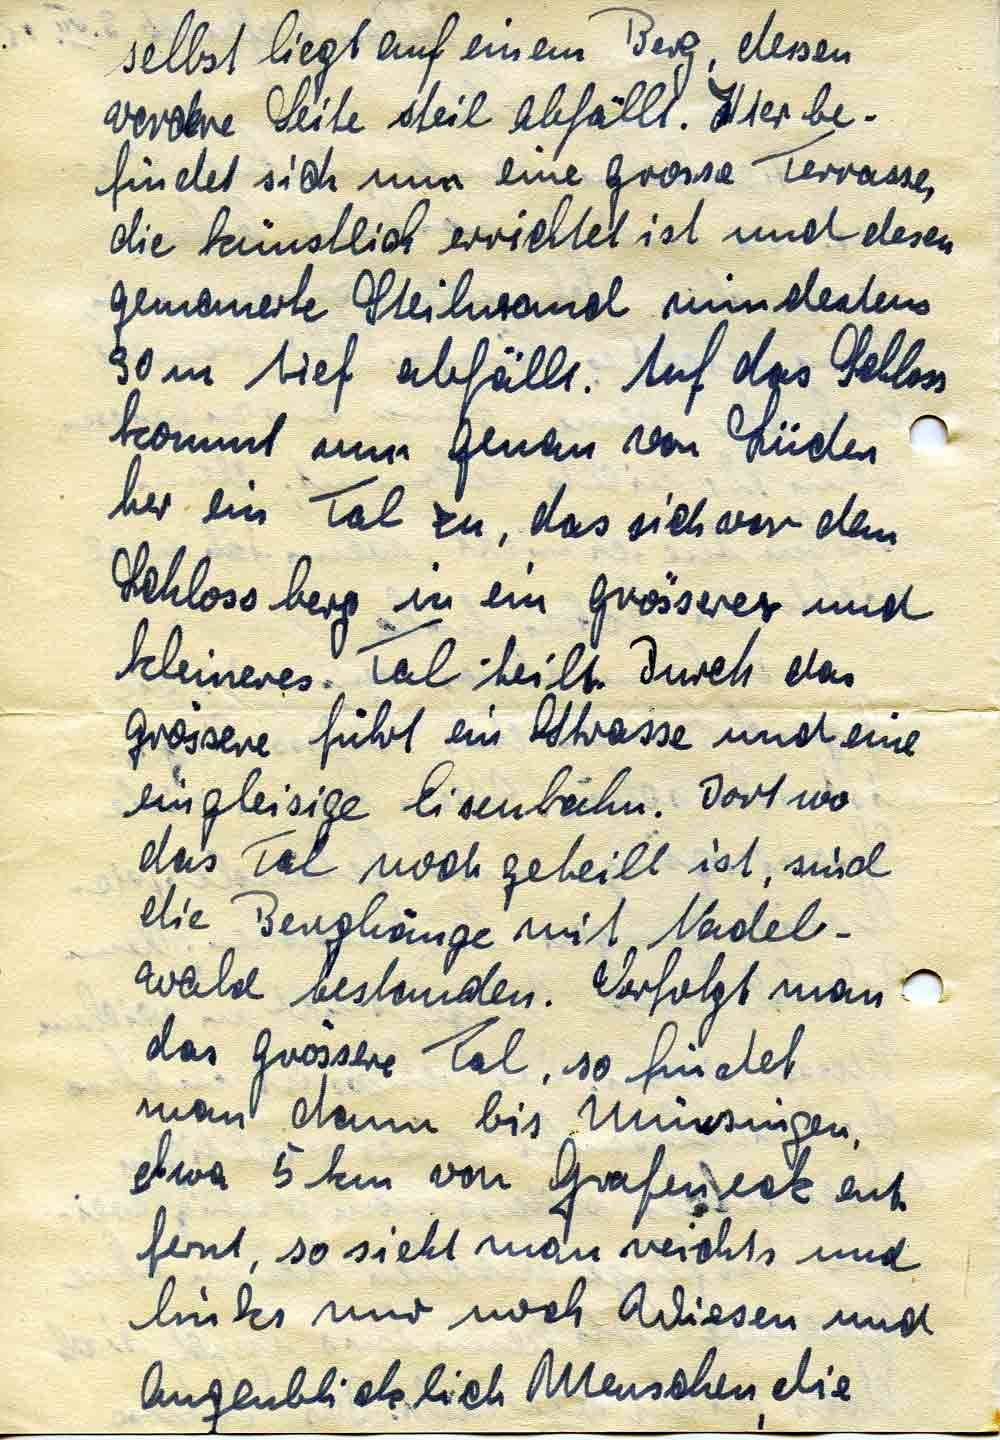 selbst liegt auf einem Berg, dessen
vordere Seite steil abfällt. Hier be-
findet sich nun eine grosse Terrasse,
die künstlich errichtet ist und desen
gemauerte Steilwand mindestens
30 m tief abfällt. Auf das Schloss
kommt nun genau von Süden
her ein Tal zu, das sich vor dem
Schlossberg in ein grösseres und
kleineres Tal teilt. Durch das
grössere führt ein Strasse und eine
eingleisige Eisenbahn. Dort wo
das Tal noch geteilt ist, sind
die Berghänge mit Nadel-
wald bestanden. Verfolgt man
das grössere Tal, so findet
man dann bis Münsingen,
etwa 5 km von Grafeneck ent
fernt, so sieht man rechts und
links nur noch Wiesen und
Augenblicklich Menschen, die